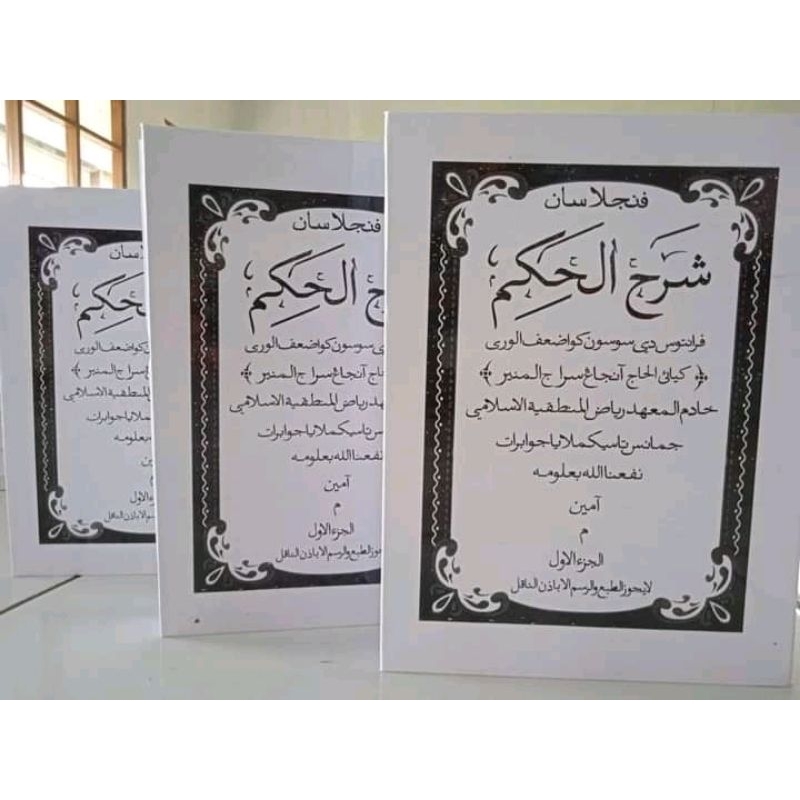 فنجلاسان
شرح الحكم
فرانتوس دبي سوسون كو اضعف الورى
كيائى الحاج آنجاغ سراج المنير
خادم المعهد رياض المنطقية الاسلامي
جمانس تاسيكملايا جوابرات
نفعنا الله بعلومه
آمين
م
الجزء الاول
لا يجوز الطبع والرسم الا باذن الناقل
فنجلاسان
شرح الحكم
سوسون كو اضعف الورى
الحاج آنجاغ سراج المنير
المعهد رياض المنطقية الاسلامي
جمانس تاسيكملايا جوابرات
نفعنا الله بعلومه
آمين
م
الجزء الاول
يجوز الطبع والرسم الا باذن الناقل
سان
الحكم
كو اضعف الورى
آنجاغ سراج المنير
المنطقية الاسلامي
تاسيكملايا جوابرات
نفعنا الله بعلومه
آمين
م
الجزء الاول
والرسم الا باذن الناقل